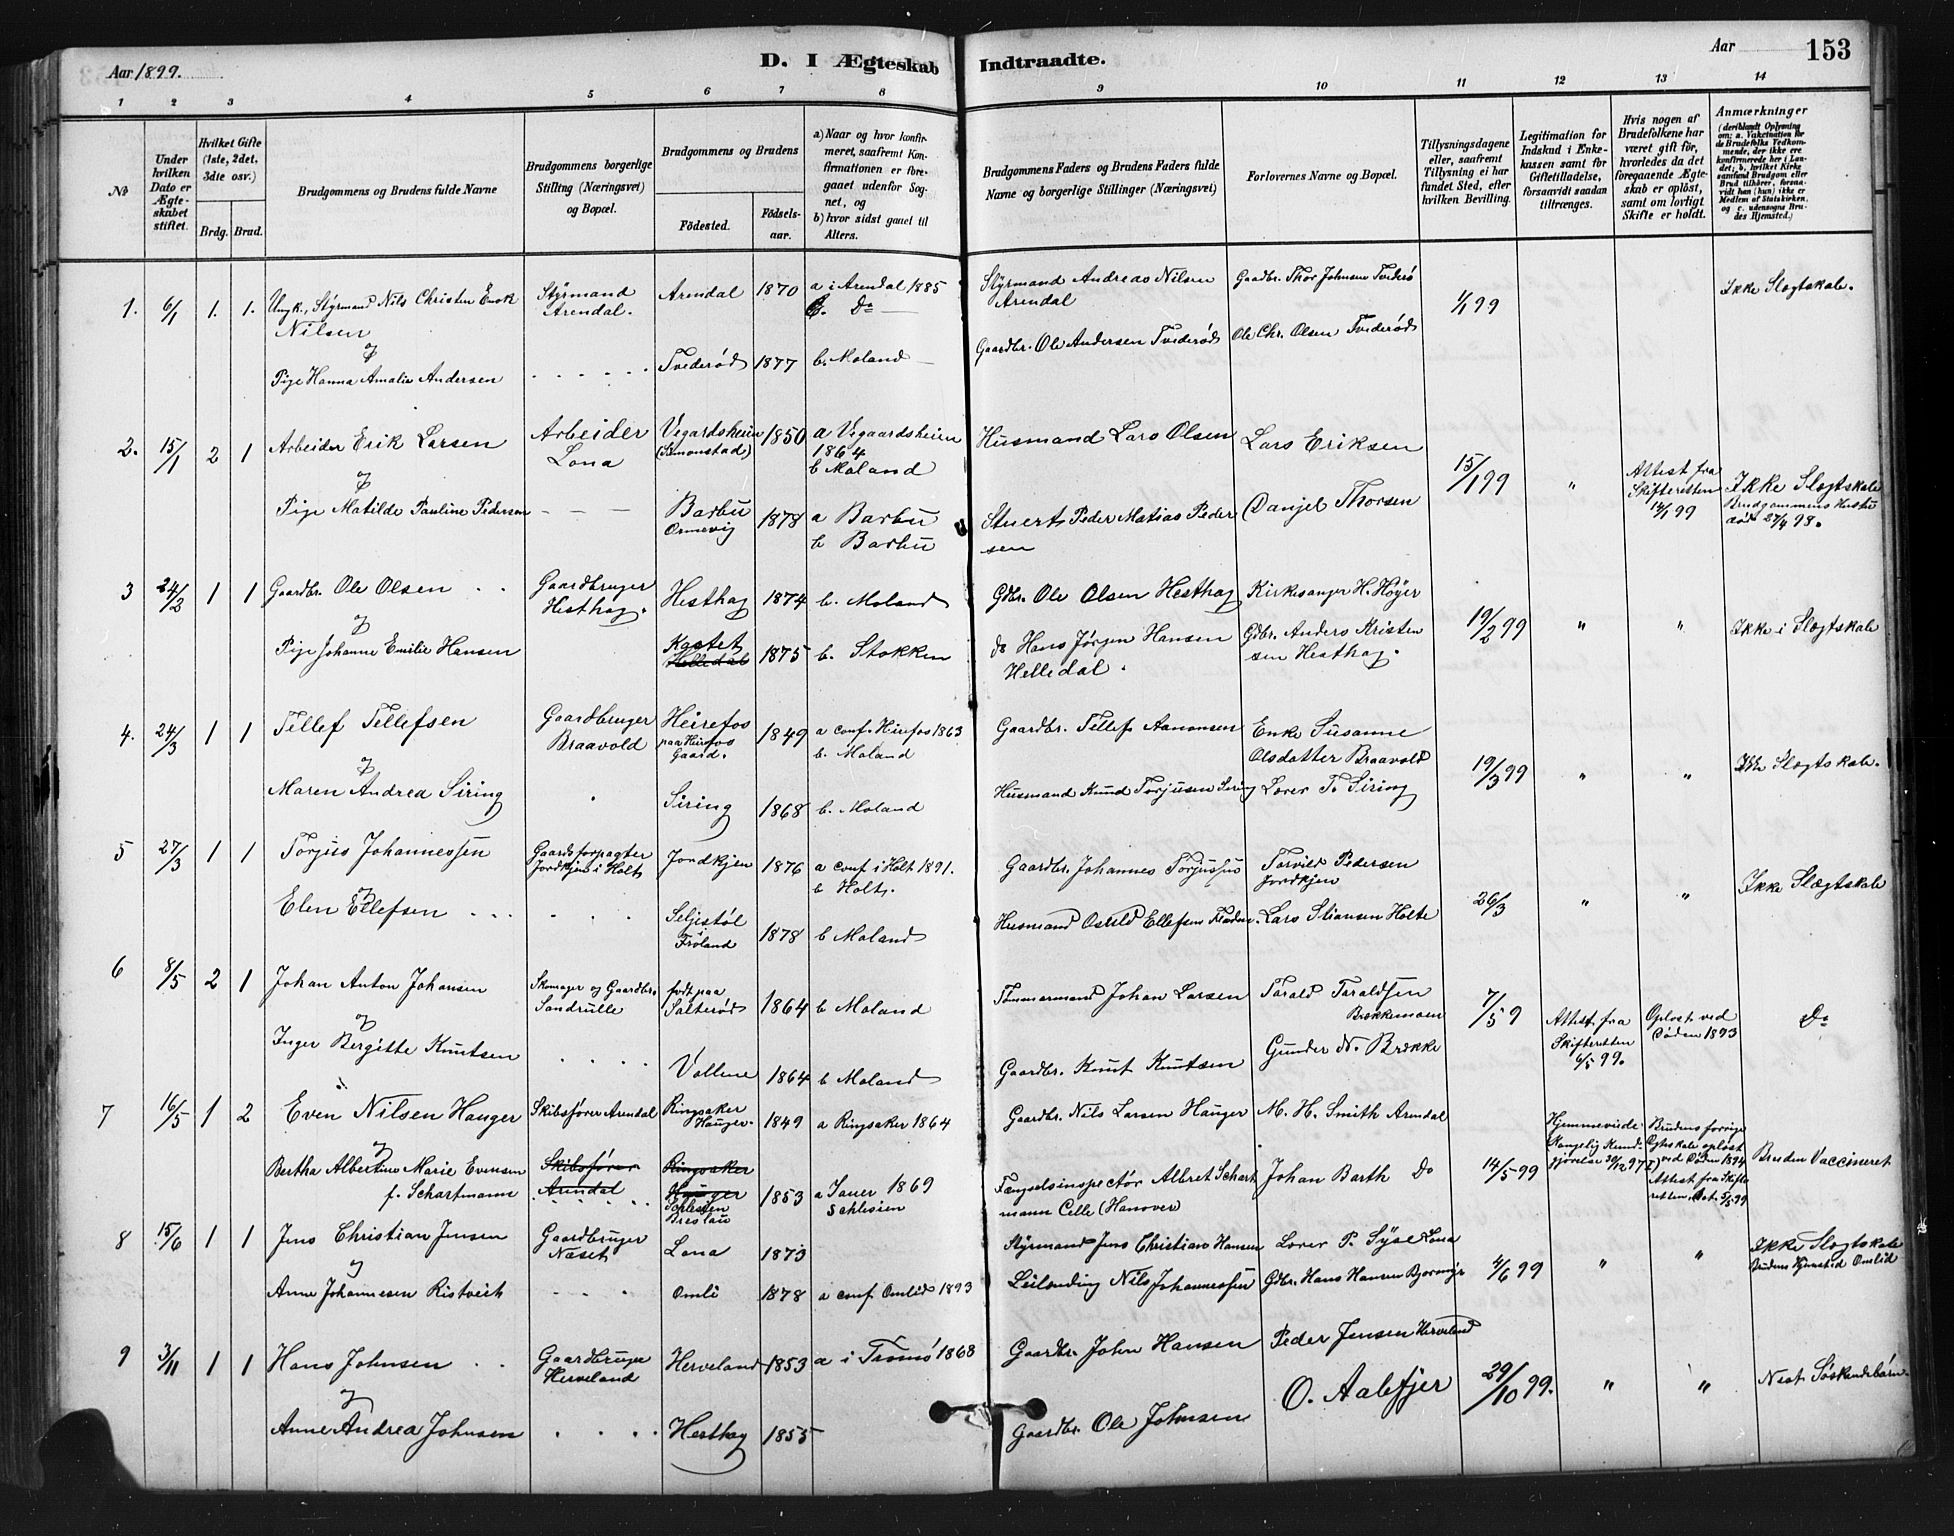 Aar 1899.
D. I Ægteskab Indtraadte.
Aar
153
1 2 3 4 5 6 7 8 9 10 11 12 13 14
No
Under hvilken Dato er Ægteskabet stiftet.
Hvilket Gifte (1ste, 2det, 3die osv.)
Brdg. Brud.
Brudgommens og Brudens fulde Navne
Brudgommens borgerlige Stilling (Næringsvei) og Bopæl.
Brudgommens og Brudens
Födested.
Födselsaar.
a) Naar og hvor konfirmeret, saafremt Konfirmationen er foregaaet udenfor Sognet, og
b) hvor sidst gaaet til Alters.
Brudgommens Faders og Brudens Faders fulde Navne og borgerlige Stillinger (Næringsvei)
Forlovernes Navne og Bopæl.
Tillysningsdagene eller, saafremt Tillysning ei har fundet Sted, efter hvilken Bevilling.
Legitimation for Indskud i Enkekassen samt for Giftetilladelse, forsaavidt saadan tiltrænges.
Hvis nogen af Brudefolkene har været gift för, hvorledes da det foregaaende Ægteskab er oplöst, samt om lovligt Skifte er holdt.
Anmærkninger (deriblandt Oplysning om: a. Vakcination for de Brudefolks Vedkommende, der ikke ere konfirmerede her i Landet; b. hvilket Kirkesamfund Brudgom eller Brud tilhörer, forsaavidt han (hun) ikke er Medlem af Statskirken, og c. udensogns Brudes Hjemsted.)
1. 6/1 1. 1. Ungk., Styrmand Nils Christen Enok Nilsen
og
Pige Hanna Amalie Andersen
Styrmand Arendal.
Arendal 1870 a i Arendal 1885
b. Do
Tvederød 1877 b. Moland
Styrmand Andreas Nilsen Arendal
Gaardbr. Ole Andersen Tvederød
Gaardbr. Thor Johnsen Tvederø
Ole Chr. Olsen Tvederød
1/1 99
Ikke Slegtskab.
2. 15/1 2 1 Arbeider Erik Larsen
og
Pige Matilde Pauline Pedersen
Arbeider Lona
Vegardsheien (Simonstad) 1850 a Vegaardsheien 1864
b Moland
Barbu Ormevig 1878 a Barbu
b Barbu
Husmand Lars Olsen
Stuert Peder Matias Pedersen
Lars Eriksen
Danjel Thorsen
15/1 99
"
Attest fra Skifteretten 14/1 99
Ikke Slegtskab
Brudgommens Hustru død 27/4 98.
3 24/2 1 1 Gaardbr. Ole Olsen
og
Pige Johanne Emilie Hansen
Gaardbruger Hesthag.
Hesthag 1874 b. Moland
Kastet Helledal 1875 b. Stokken
Gdbr. Ole Olsen Hesthag
do Hans Jørgen Hansen Helledal.
Kirkesanger H. Høyer
Gdbr. Anders Kristensen Hesthag.
19/2 99
" "
Ikke i Slegtskab
4. 24/3 1 1 Tellef Tellefsen
og
Maren Andrea Siring
Gaardbruger Braavold
Heirefos paa Hirefos Gaard. 1849 a conf. Hirefos 1863
b. Moland
Siring 1868 b. Moland
Gaardbr. Tellef Aanonsen
Husmand Knud Torjusen Siring
Enke Susanne Olsdatter Braavold
Lærer T. Siring
19/3 99
" "
Ikke Slegtskab.
5 27/3 1 1 Torjus Johannessen
og
Elen Ellefsen
Gaardsforpagter Jordkjen i Holt
Jordkjen 1876 a conf i Holt 1891.
b Holt.
Seljestøl i Froland 1878 b Moland
Gaardbr. Johannes Torjussen
Husmand Osuld Ellefsen
Torvild Pedersen Jordkjen
Lars Stiansen Holte
26/3
" "
Ikke Slegtskab
6 8/5 2 1 Johan Anton Johansen
og
Inger Bergitte Knutsen
Skomager og Gaardbr. Sandrulle
født paa Salterød 1864 b Moland
Vollene 1864 b Moland
Tømmermand Johan Larsen
Gaardbr. Knut Knutsen
Tarald Taraldsen Brekkemoen
Gunder N. Brekke
7/5 9
Attest fra Skifteretten 6/5 99.
Opløst ved Døden 1893
Do
7 16/5 1 2 Even Nilsen Hauger
og
Bertha Albertine Marie Evensen f. Schartmann
Skibsfører Arendal
Skibsfører Arendal
Ringsaker Hauger. 1849 a Ringsaker 1864
Ringsaker Hauger Schlesien Breslau 1853 a Jauer 1869 Schlesien
Gaardbr. Nils Larsen Hauger
Fængselsinspectør Albret Schartmann Celle (Hanover)
M. H. Smith Arendal
Johan Barth Do
14/5 99
Brudens forrige Egteskab opløst ved Døden 1894
Attest fra Skifteretten dat. 5/5 99
Bruden Vaccineret
8 15/6 1 1 Jens Christian Jensen
og
Anne Johannesen Ristveit
Gaardbruger Næset
Lona 1873
Omli 1878 a conf. Omlid 1893
Styrmand Jens Christian Hansen
Leilending Nils Johannessen
Lærer P. Syse Lona
Gdbr. Hans Hansen
4/6 99
" "
Ikke Slegtskab
Brudens Hjemsted Omlid
9 3/11 1 1 Hans Johnsen
og
Anne Andrea Johnsen
Gaardbruger Herveland
Herveland 1853 a i Tromø 1868
Hesthag 1855
Gaardbr. John Hansen
Gaardbr. Ole Johnsen
Peder Jensen Herveland
O. Aalefjer
29/10 99.
" "
Nest Søskendebørn.